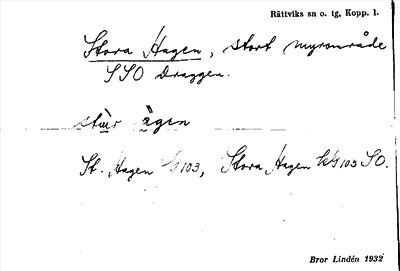 Rättviks sn o. tg, Kopp. l.
Stora Hagen, stort myrområde
SSO Draggen.
stùr àgen
St. Hagen 103, Stora Hagen 103 SO.
Bror Lindén 1932